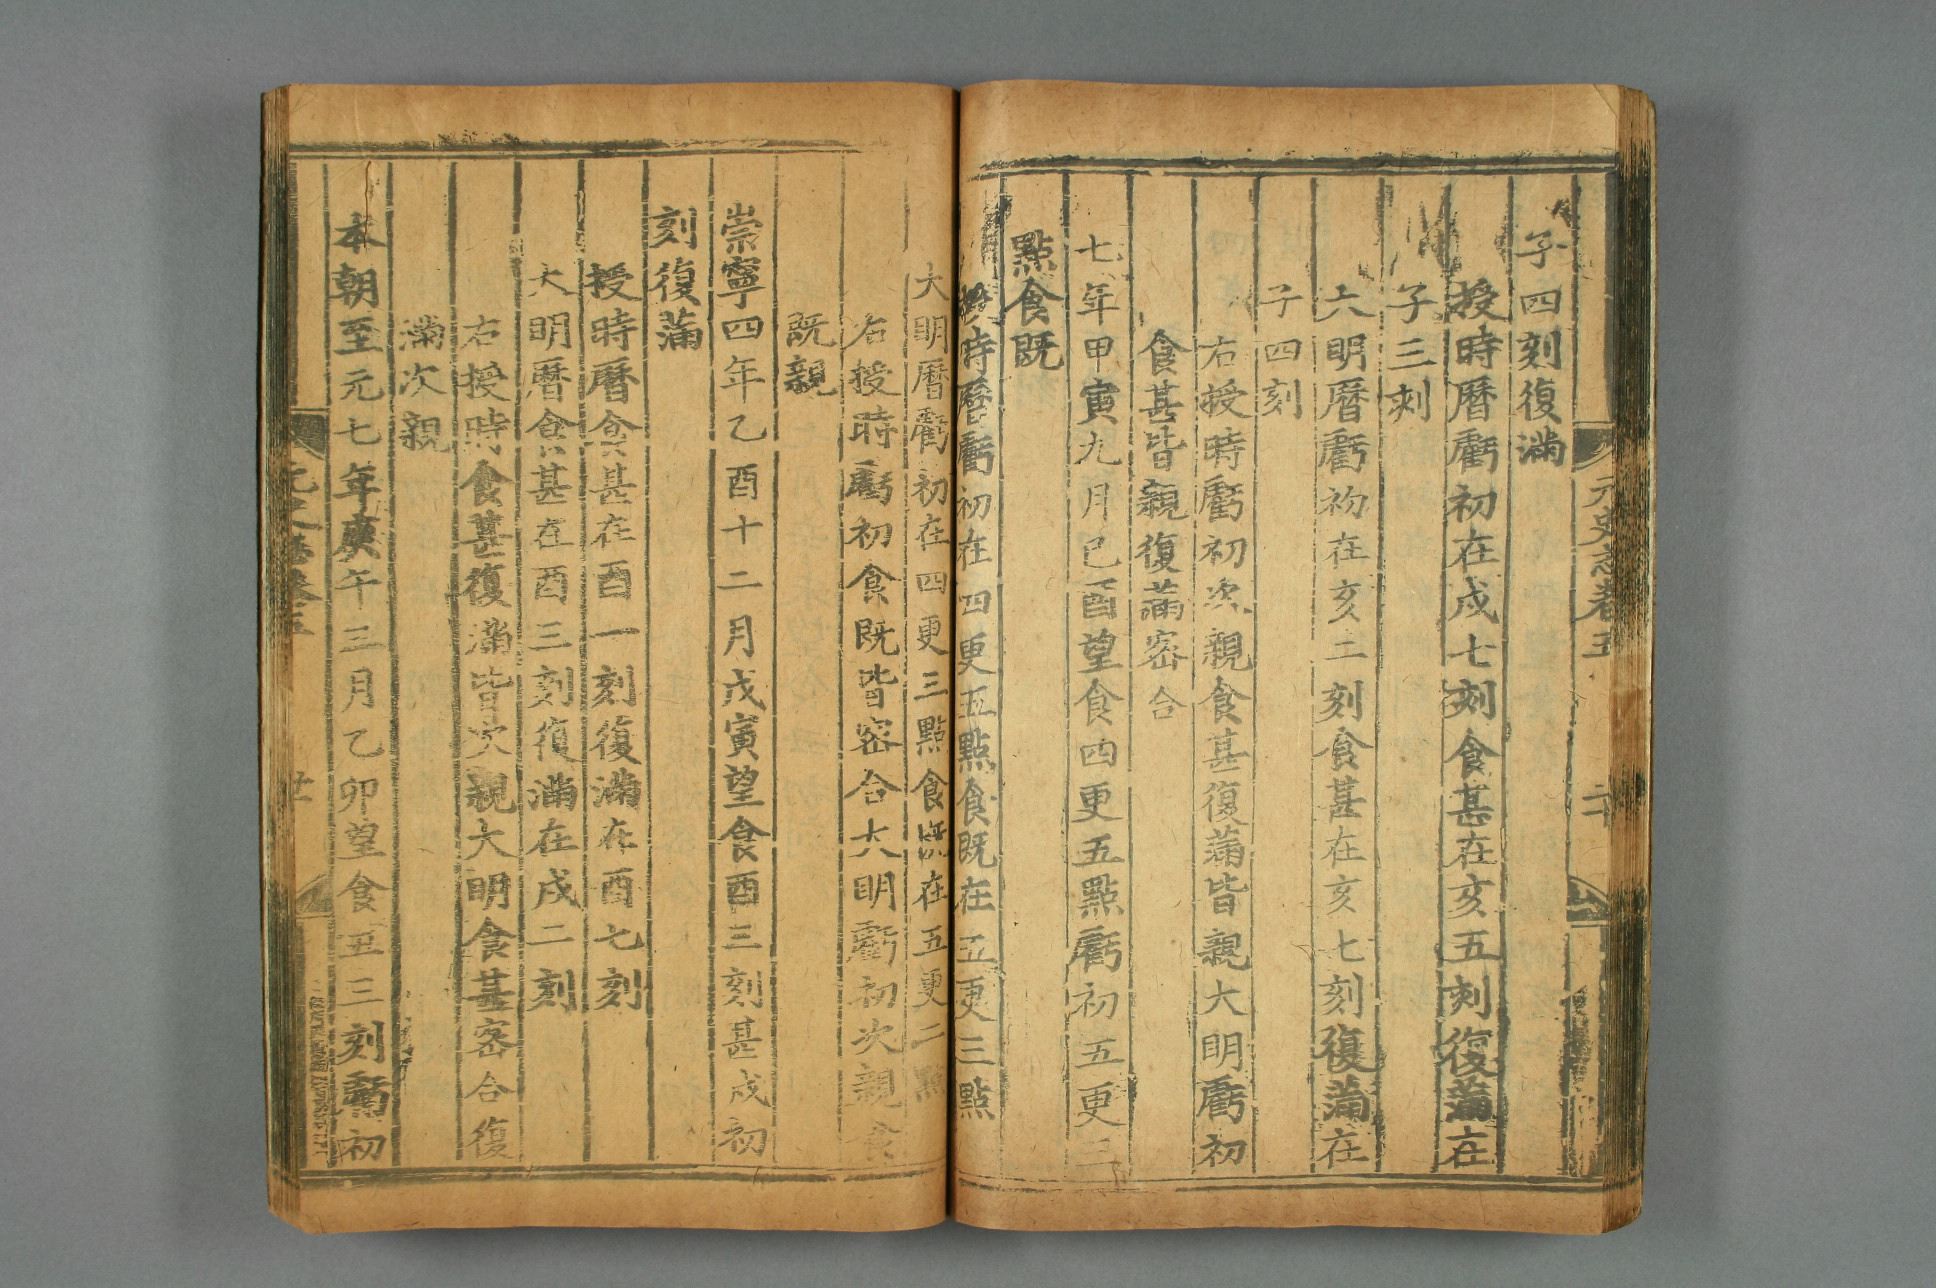 元史志卷五
二十
子四刻復滿
授時曆虧初在戌七刻食甚在亥五刻復滿在
子三刻
大明曆虧初在亥二刻食甚在亥七刻復滿在
子四刻
右授時虧初次親食甚復滿皆親大明虧初
食甚皆親復滿密合
七年甲寅九月己酉望食四更五點虧初五更三
點食既
授時曆虧初在四更五點食既在五更三點
大明曆虧初在四更三點食既在五更二點
右授時虧初食既皆密合大明虧初次親食
既親
崇寧四年乙酉十二月戊寅望食酉三刻甚戌初
刻復滿
授時曆食甚在酉一刻復滿在酉七刻
大明曆食甚在酉三刻復滿在戌二刻
右授時食甚復滿皆次親大明食甚密合復
滿次親
本朝至元七年庚午三月乙卯望食丑三刻虧初